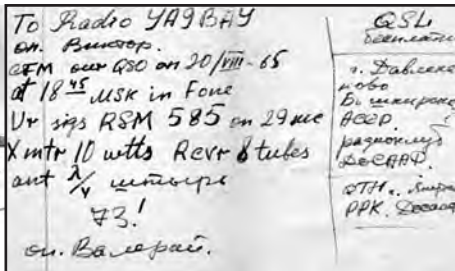 To Radio YA9BAY
оп. Виктор.
CFM our QSO on 20/VIII-65
at 18 45 MSK in Fone
Ur sigs RSM 585 on 29 mc
Xmtr 10 wtts Rcvr 8 tubes
ant λ/4 штырь
73!
оп. Валерий.
QSL
бесплатно
г. Давлека
ново
Башкирск
АССР.
радиоклуб
ДОСААФ.
QTH.
РРК.